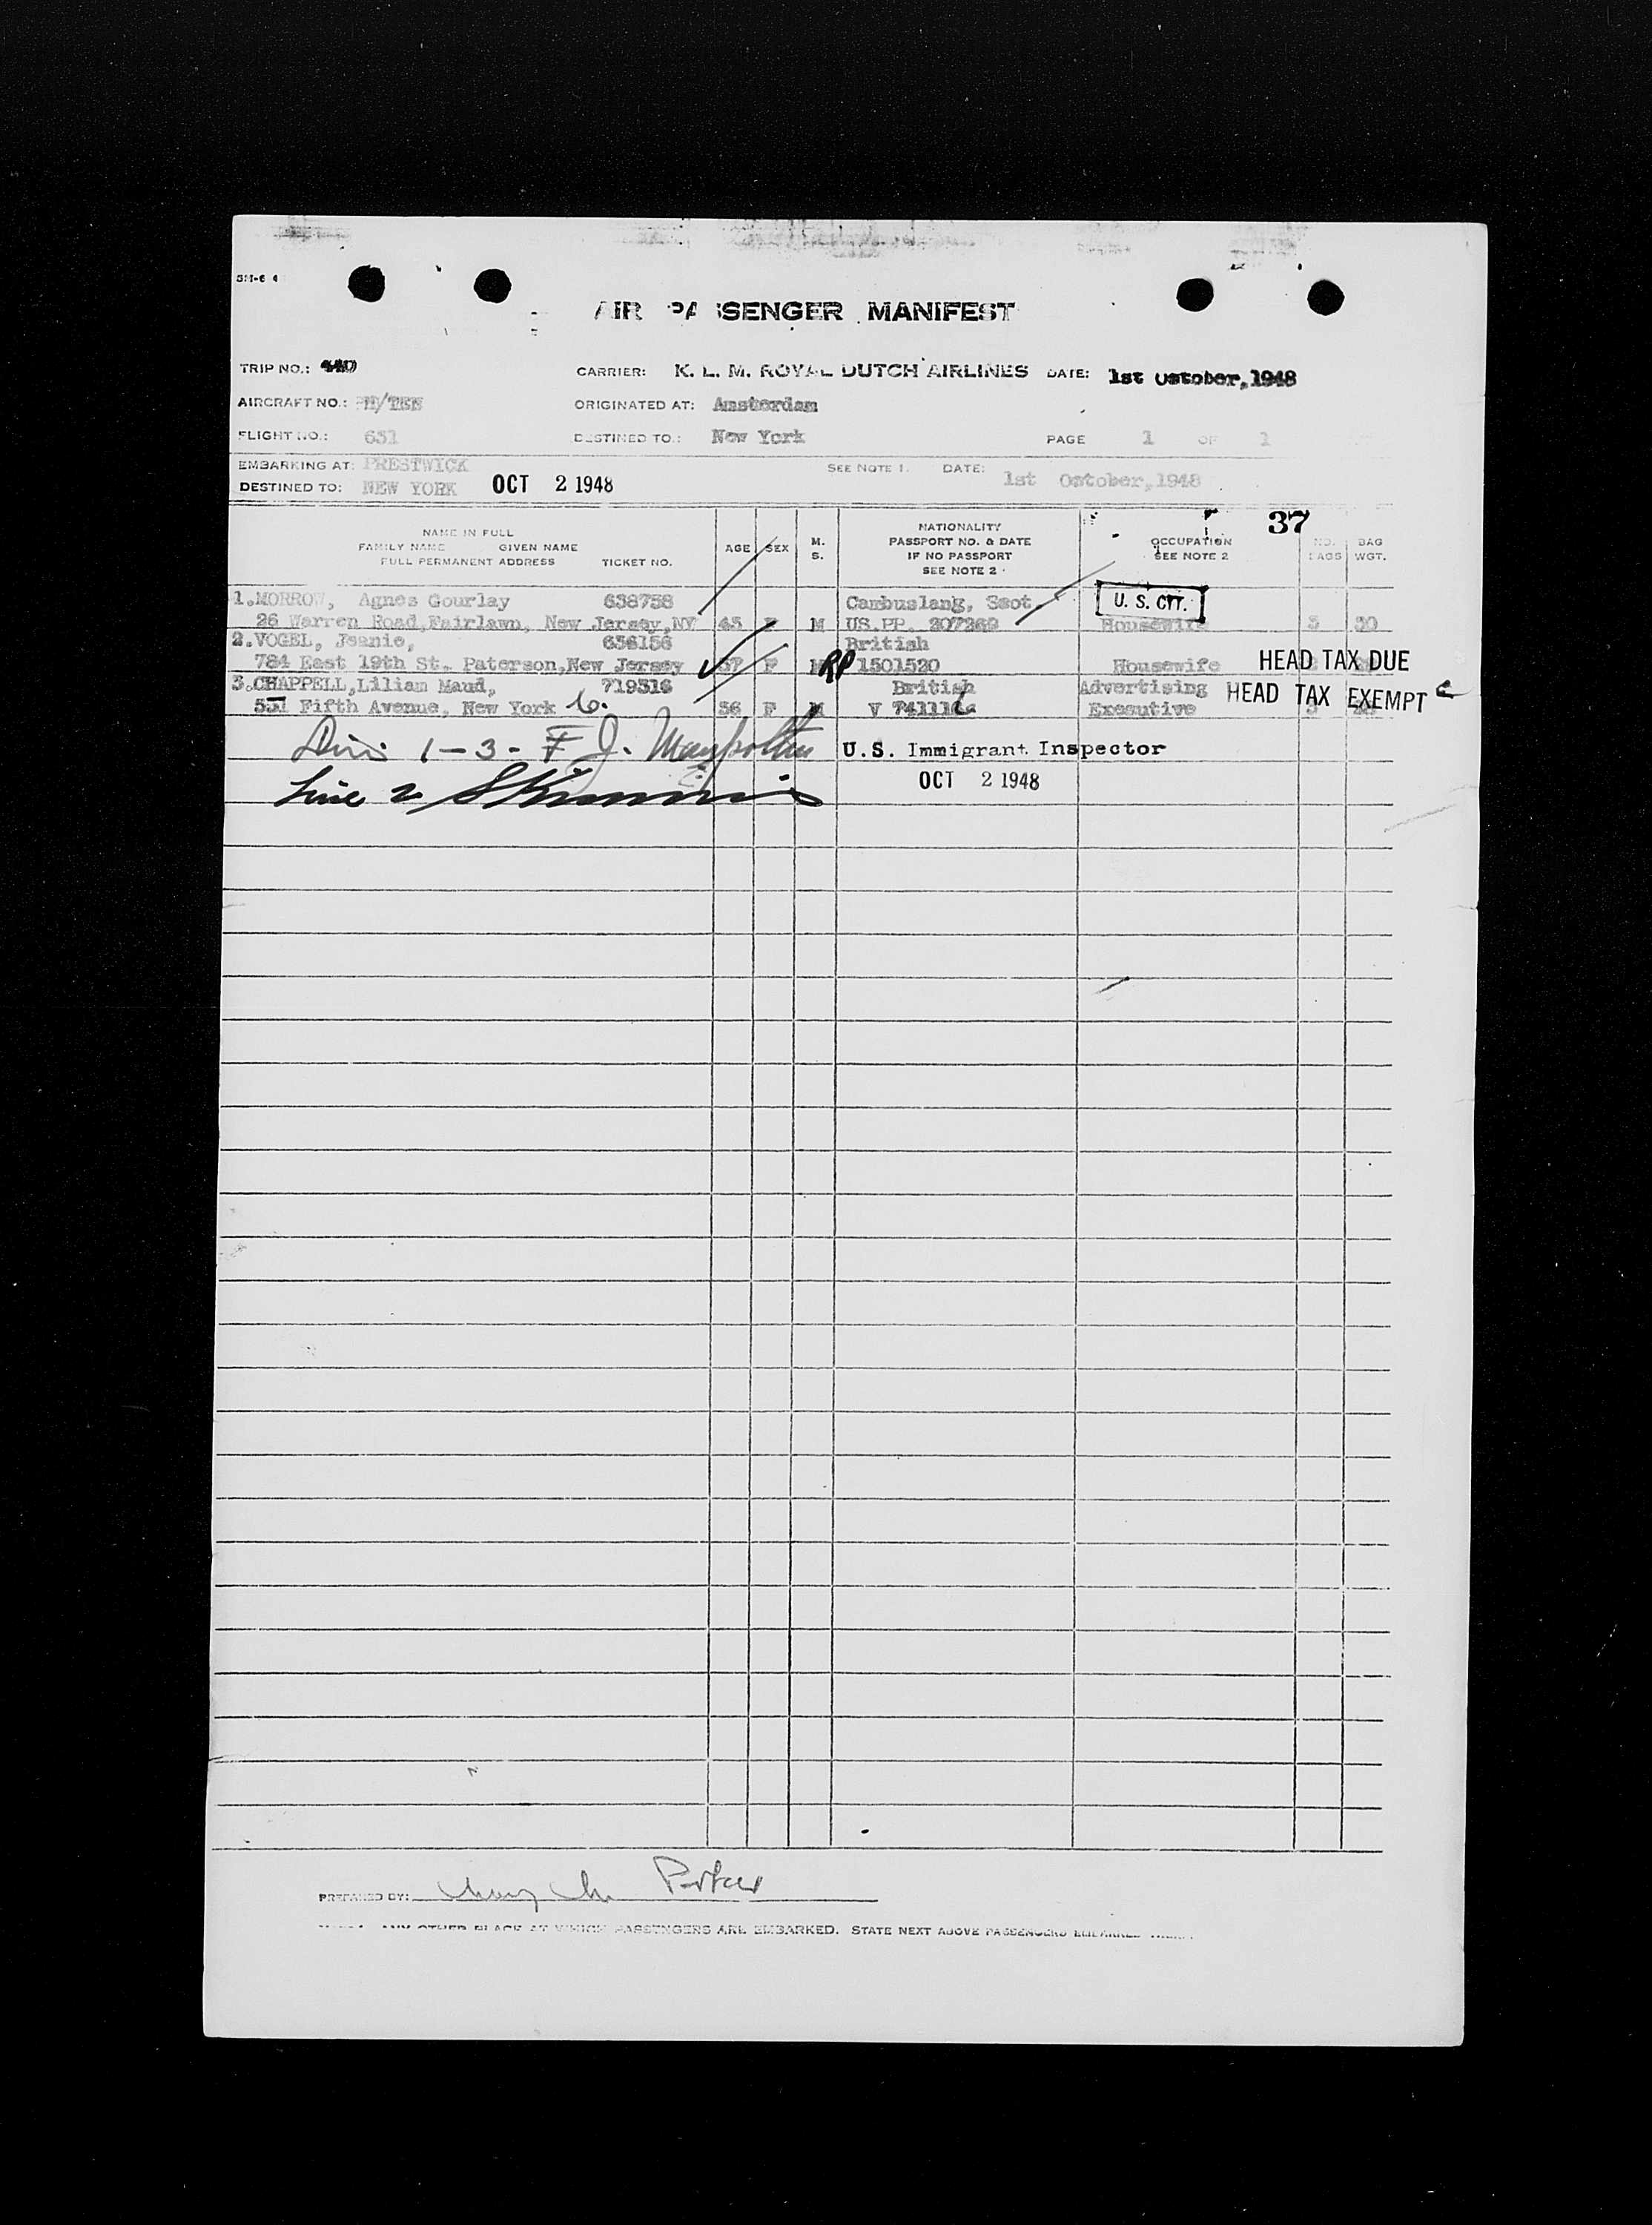 AIR PASSENGER MANIFEST
TRIP NO.: 440 CARRIER: K. L. M. ROYAL DUTCH AIRLINES DATE: 1st Ostober,1948
AIRCRAFT NO.: PH/TEN ORIGINATED AT: Amsterdam
FLIGHT NO.: 631 DESTINED TO.: New York PAGE 1 OF 1
EMBARKING AT: PRESTWICK SEE NOTE 1. DATE: 1st Ostober,1948
DESTINED TO: NEW YORK OCT 2 1948
37
NAME IN FULL
FAMILY NAME GIVEN NAME
FULL PERMANENT ADDRESS TICKET NO.
AGE SEX M. S.
NATIONALITY
PASSPORT NO. & DATE
IF NO PASSPORT
SEE NOTE 2
OCCUPATION
SEE NOTE 2
NO. BAGS
BAG WGT.
1.MORROW, Agnes Gourlay 638758 Cambuslang, Scot. U. S. CIT.
26 Warren Road,Fairlawn, New Jersey,NY 45 F M US.PP. 207269 Housewife 3 30
2.VOGEL, Jeanie, 656156 British
784 East 19th St. Paterson,New Jersey 37 F M RP 1501520 Housewife HEAD TAX DUE
3.CHAPPELL,Lilian Maud, 719316 British Advertising HEAD TAX EXEMPT
551 Fifth Avenue, New York 6. 56 F M V Executive
1-3- F J. U.S. Immigrant Inspector
Line 2 OCT 2 1948
PREPARED BY:
ANY OTHER PLACE AT WHICH PASSENGERS ARE EMBARKED. STATE NEXT ABOVE PASSENGERS EMBARKED